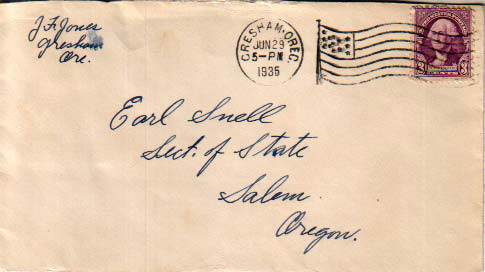 J F Jones
Gresham
Ore.
GRESHAM, OREG.
JUN 29
5-PM
1935
3
Earl Snell
Sect. of State
Salem
Oregon.